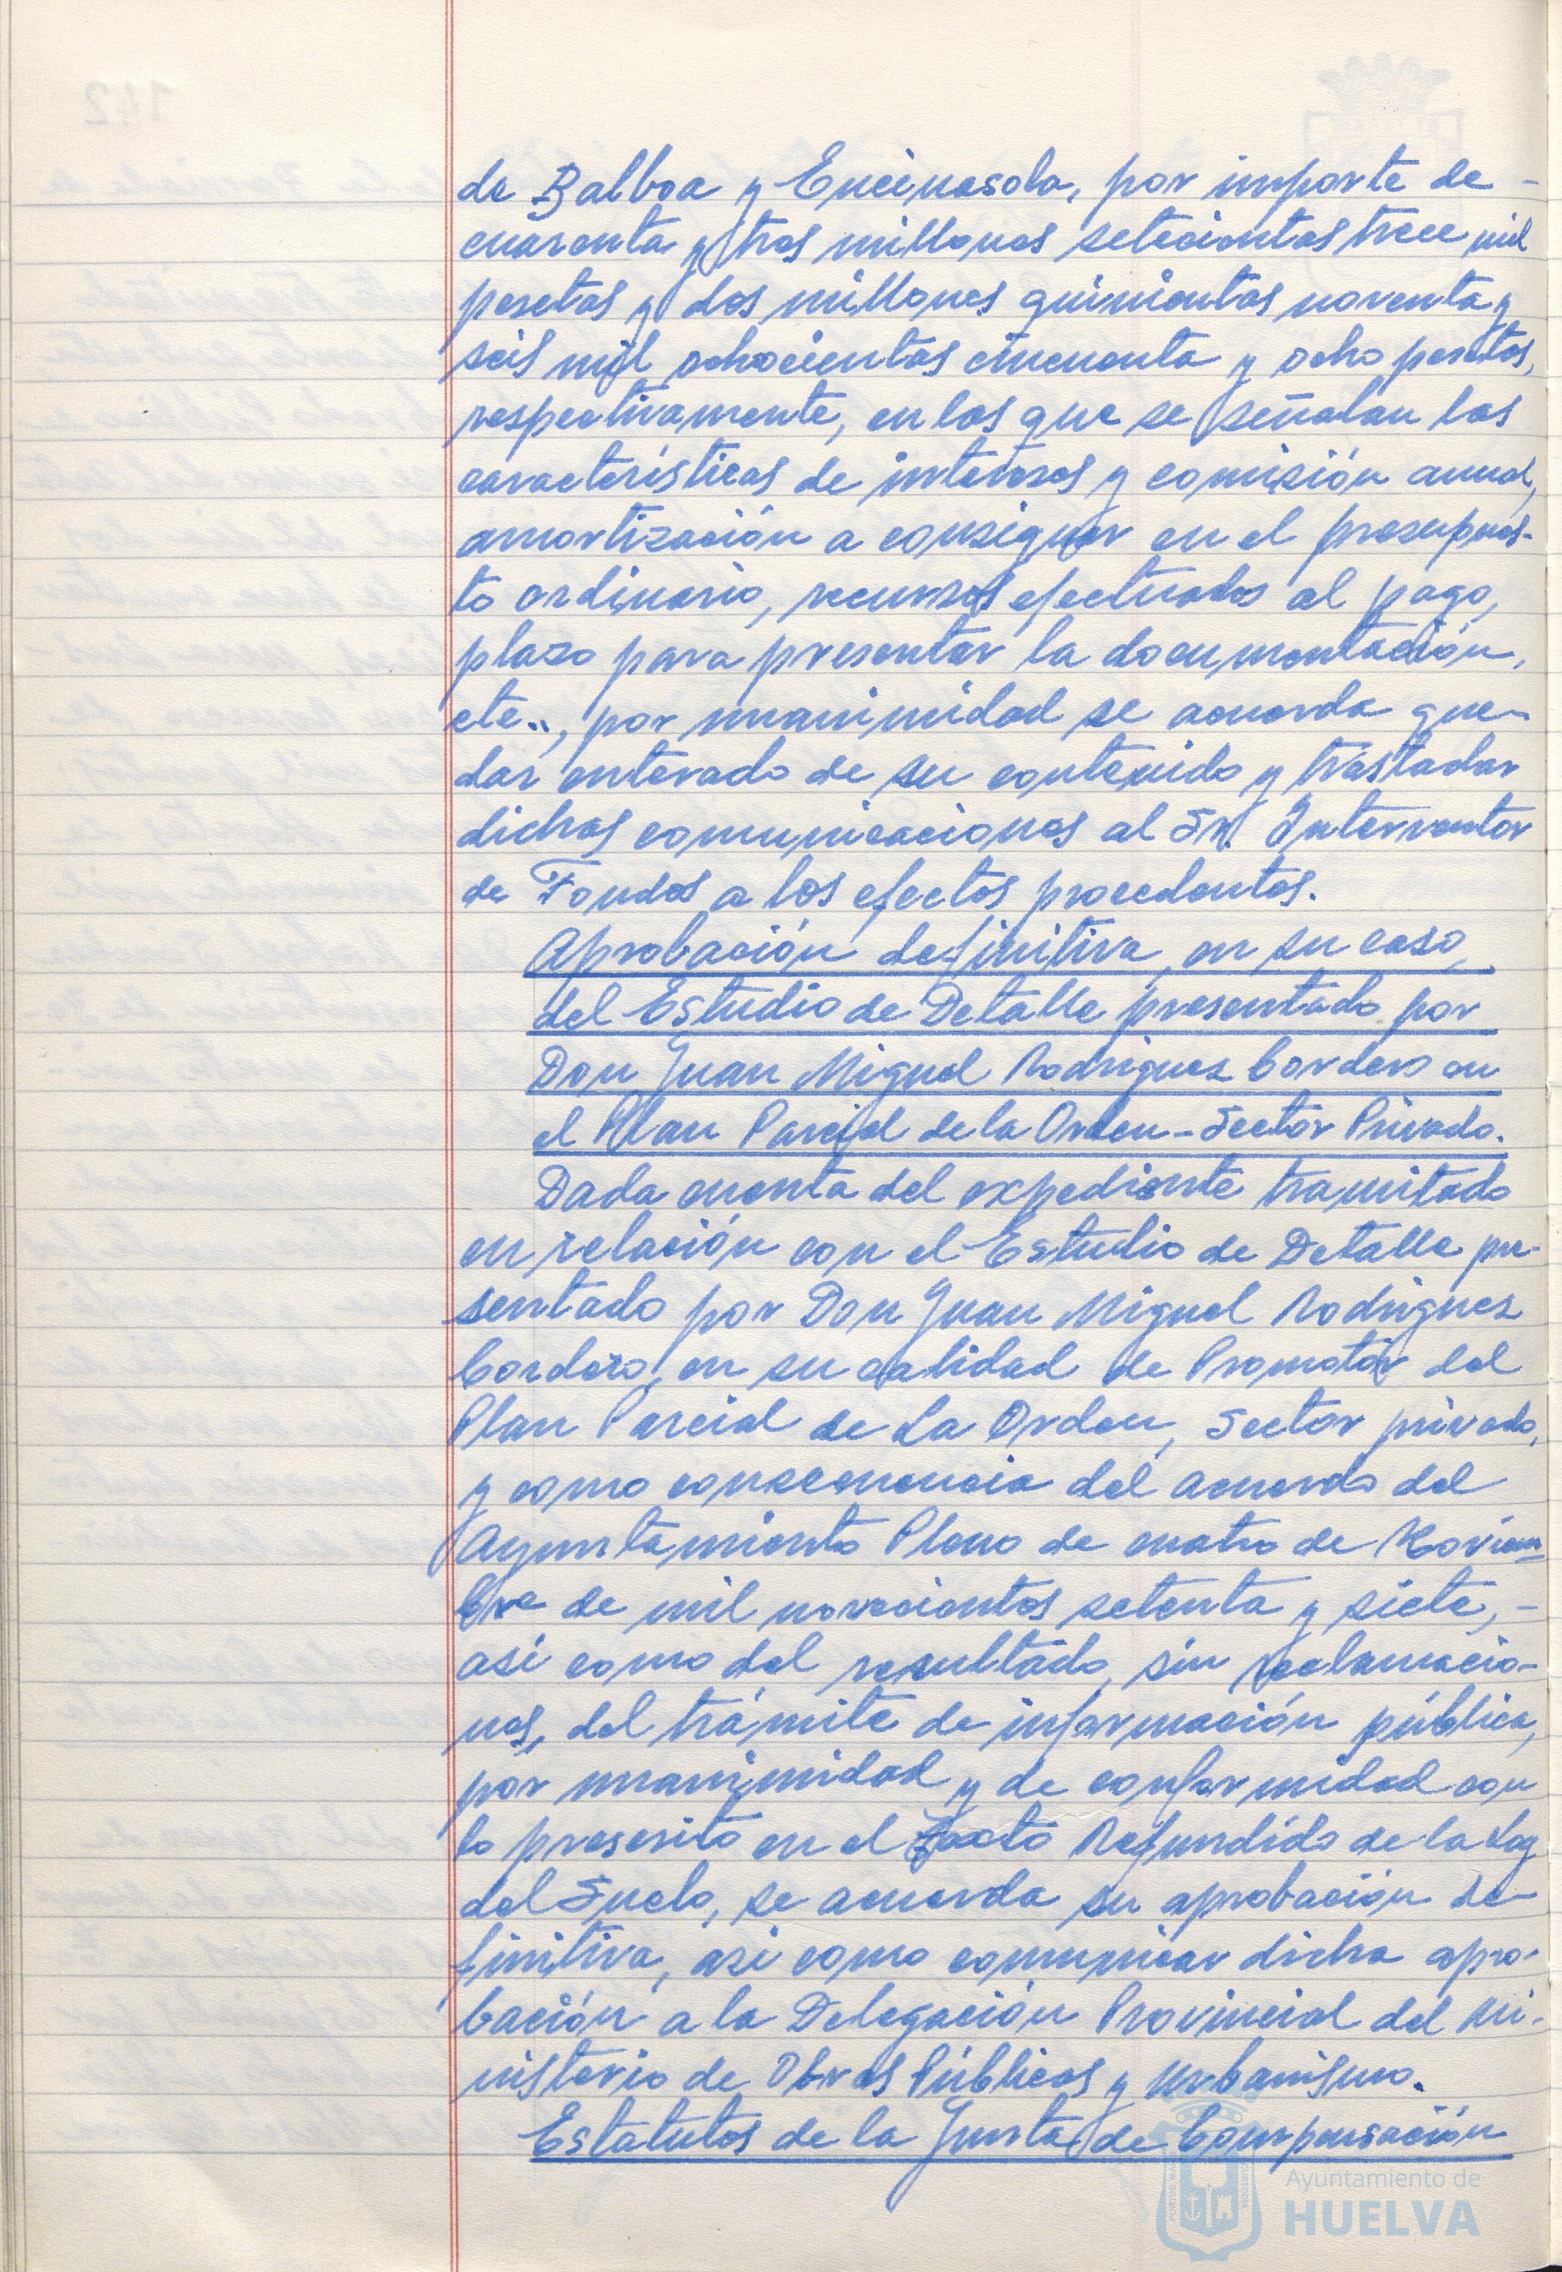 de Balboa y Encinasola, por importe de -
cuarenta y tres millones setecientas trece mil
pesetas y dos millones quinientas noventa y
seis mil ochocientas cincuenta y ocho pesetas,
respectivamente, en las que se señalan las
características de intereses y comisión anual,
amortización a consignar en el presupues-
to ordinario, recursos efectuados al pago,
plazo para presentar la documentación,
etc.., por unanimidad se acuerda que-
dar enterado de su contenido y trasladar
dichas comunicaciones al Sr. Interventor
de Fondos a los efectos procedentes.
Aprobación definitiva, en su caso,
del Estudio de Detalle presentado por
Don Juan Miguel Rodriguez Cordero en
el Plan Parcial de la Orden-Sector Privado.
Dada cuenta del expediente tramitado
en relación con el Estudio de Detalle pre-
sentado por Don Juan Miguel Rodriguez
Cordero, en su calidad de Promotor del
Plan Parcial de La Orden, Sector privado,
y como consecuencia del acuerdo del
Ayuntamiento Pleno de cuatro de Noviem-
bre de mil novecientos setenta y siete, -
asi como del resultado, sin reclamacio-
nes, del trámite de información pública,
por unanimidad y de conformidad con
lo prescrito en el Texto Refundido de la Ley
del Suelo, se acuerda su aprobación de-
finitiva, asi como comunicar dicha apro-
bación a la Delegación Provincial del Mi-
nisterio de Obras Públicas y Urbanismo.
Estatutos de la Junta de Compensación
Ayuntamiento de
HUELVA